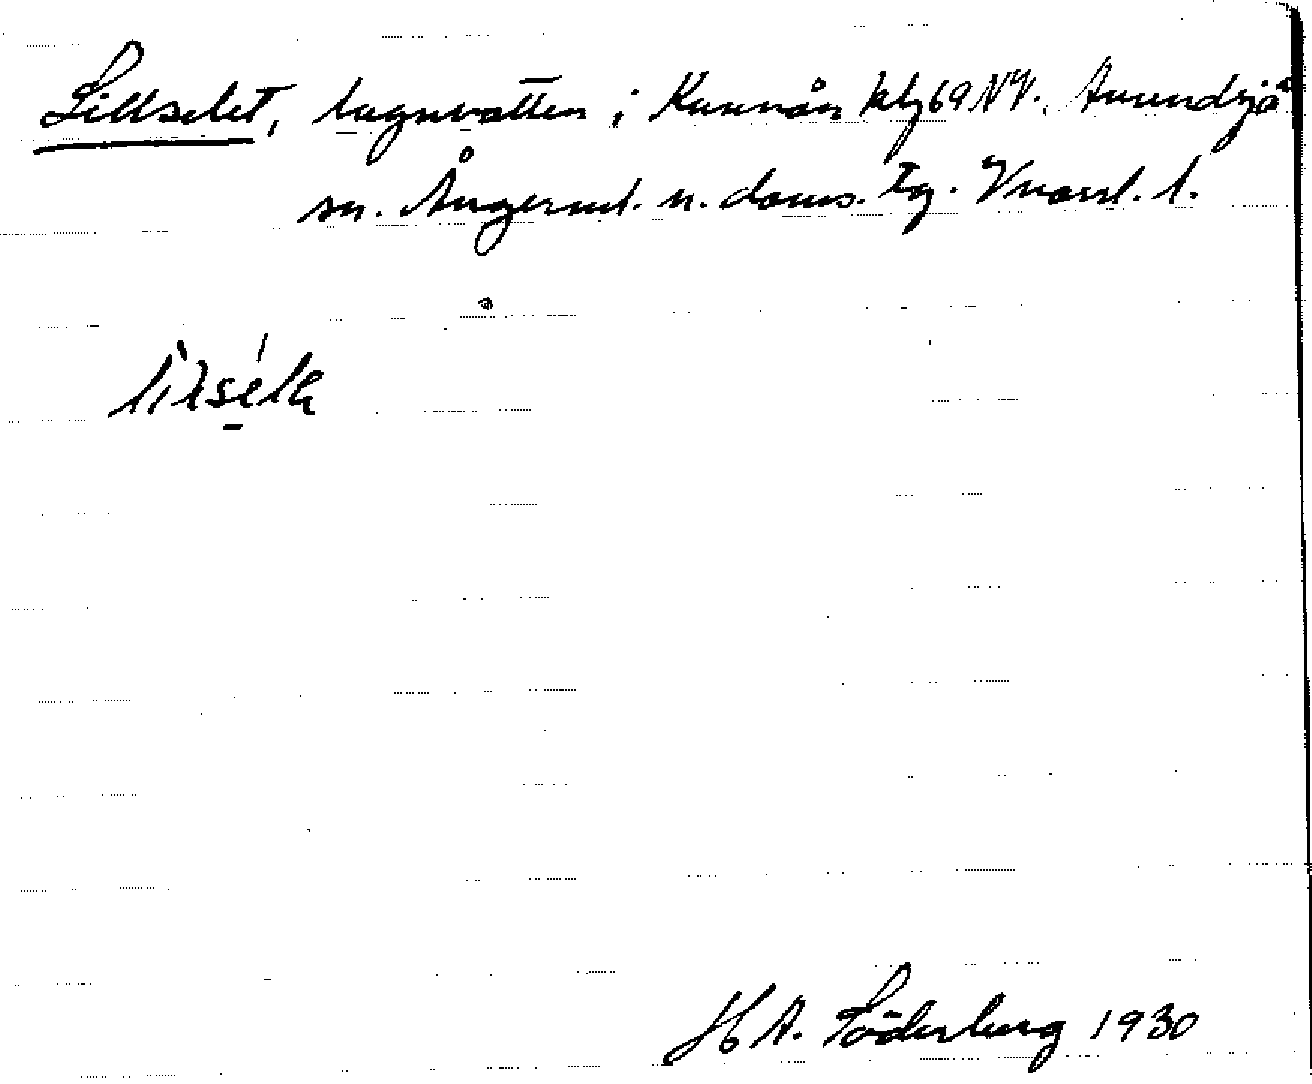 Lillselet, lugnvatten i Kannån kbl 69 NV. Anundsjö
sn. Ångerml. n. doms. tg. Vnorrl. l.
H A. Söderberg 1930